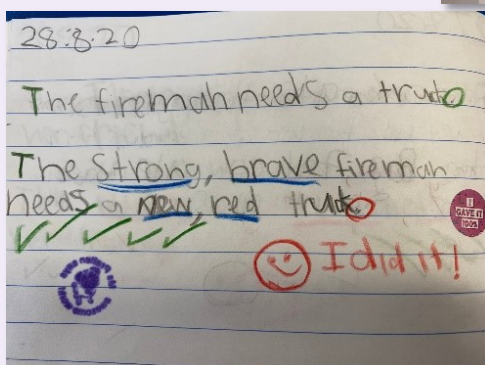 28.8.20
The fireman needs a truck.
The strong, brave fireman
needs a new, red truck.
I GAVE IT 100%
I did it!